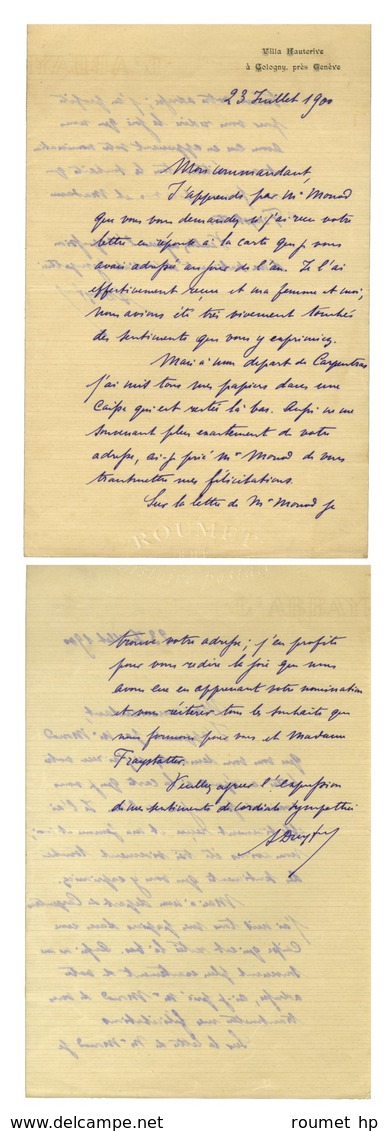 Villa Hauterive
à Cologny, près Genève
23 Juillet 1900
Mon commandant,
J'apprends par Mr Monod
que vous vous demandez si j'ai reçu votre
lettre réponse à la carte que je vous
avais adressée au jour de l'an. Je l'ai
effectivement reçue et ma femme et moi,
nous avions été très vivement touchés
des sentiments que vous y exprimiez.
Mais à mon départ de Carpentras
j'ai mis tous mes papiers dans une
caisse qui est restée là bas. Aussi ne me
souvenant plus exactement de votre
adresse, ai-je prié Mr Monod de vous
transmettre mes félicitations.
Sur la lettre de Mr Monod je
ROUMET
trouve votre adresse ; j'en profite
pour vous redire la joie que nous
avons eue en apprenant votre nomination
et vous réitérer tous les souhaits que
nous formons pour vous et Madame
Freystatter.
Veuillez agréer l'expression
de mes sentiments de cordiale sympathie
A Dreyfus
www.delcampe.net
roumet hp